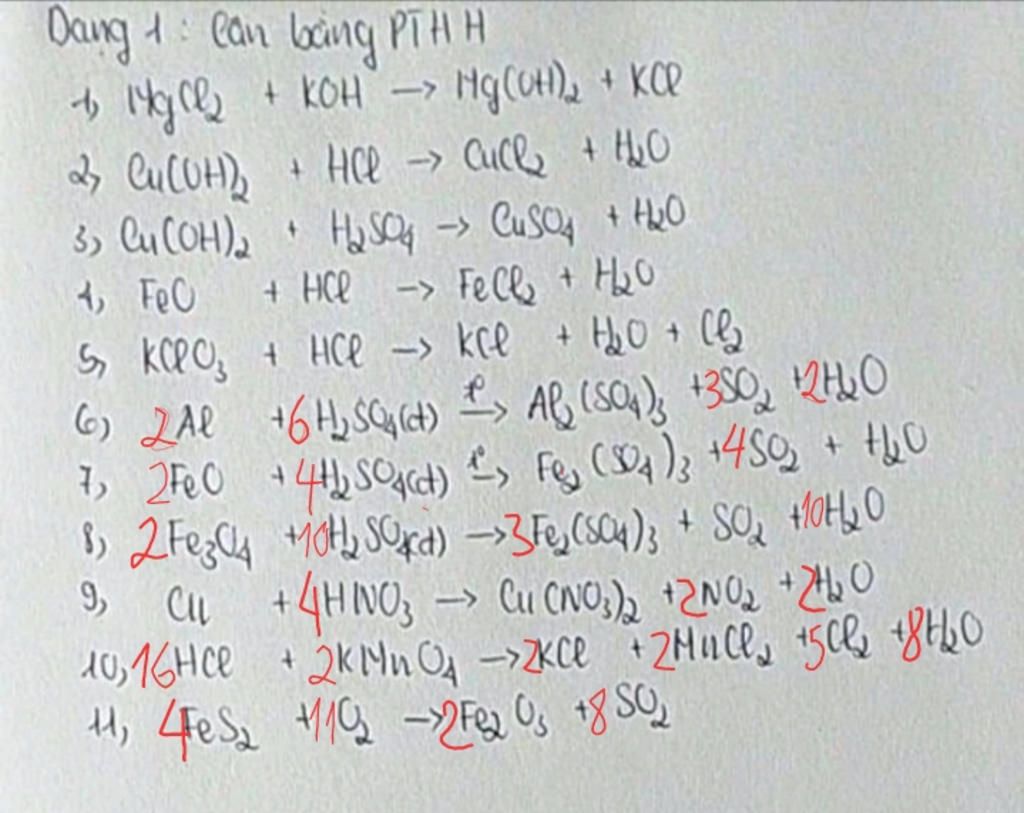 Dạng 1: Cân bằng PTHH
1, MgCl₂ + KOH → Mg(OH)₂ + KCl
2, Cu(OH)₂ + HCl → CuCl₂ + H₂O
3, Cu(OH)₂ + H₂SO₄ → CuSO₄ + H₂O
4, FeO + HCl → FeCl₂ + H₂O
5, KClO₃ + HCl → KCl + H₂O + Cl₂
6, 2Al + 6H₂SO₄(đ) t°→ Al₂(SO₄)₃ + 3SO₂ + 2H₂O
7, 2FeO + 4H₂SO₄(đ) t°→ Fe₂(SO₄)₃ + 4SO₂ + H₂O
8, 2Fe₃O₄ + 10H₂SO₄(đ) → 3Fe₂(SO₄)₃ + SO₂ + 10H₂O
9, Cu + 4HNO₃ → Cu(NO₃)₂ + 2NO₂ + 2H₂O
10, 16HCl + 2KMnO₄ → 2KCl + 2MnCl₂ + 5Cl₂ + 8H₂O
11, 4FeS₂ + 11O₂ → 2Fe₂O₃ + 8SO₂